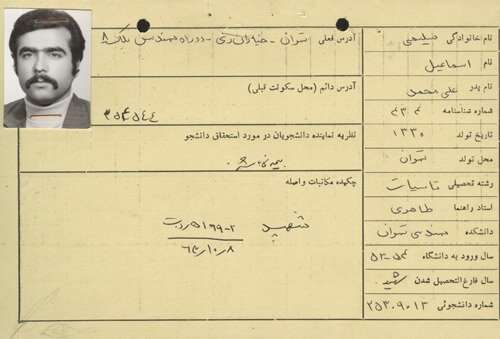 نام خانوادگی سلیمی
نام اسماعیل
نام پدر علی محمد
شماره شناسنامه ۴۳۴
تاریخ تولد ۱۳۳۰
محل تولد تهران
رشته تحصیلی تاسیسات
استاد راهنما طاهری
دانشکده مهندسی تهران
سال ورود به دانشگاه ۵۳-۵۴
سال فارغ التحصیل شدن شهید
شماره دانشجوئی ۲۵۳.۹.۱۳
آدرس فعلی تهران - خیابان ری - دوراه مهندس پلاک ۸
آدرس دائم (محل سکونت قبلی)
۳۵۴۵۴۴
نظریه نماینده دانشجویان در مورد استحقاق دانشجو
بیمه
چکیده مکاتبات واصله
شهید
۵۱۶۹۹-۲
۶۳/۱۰/۸